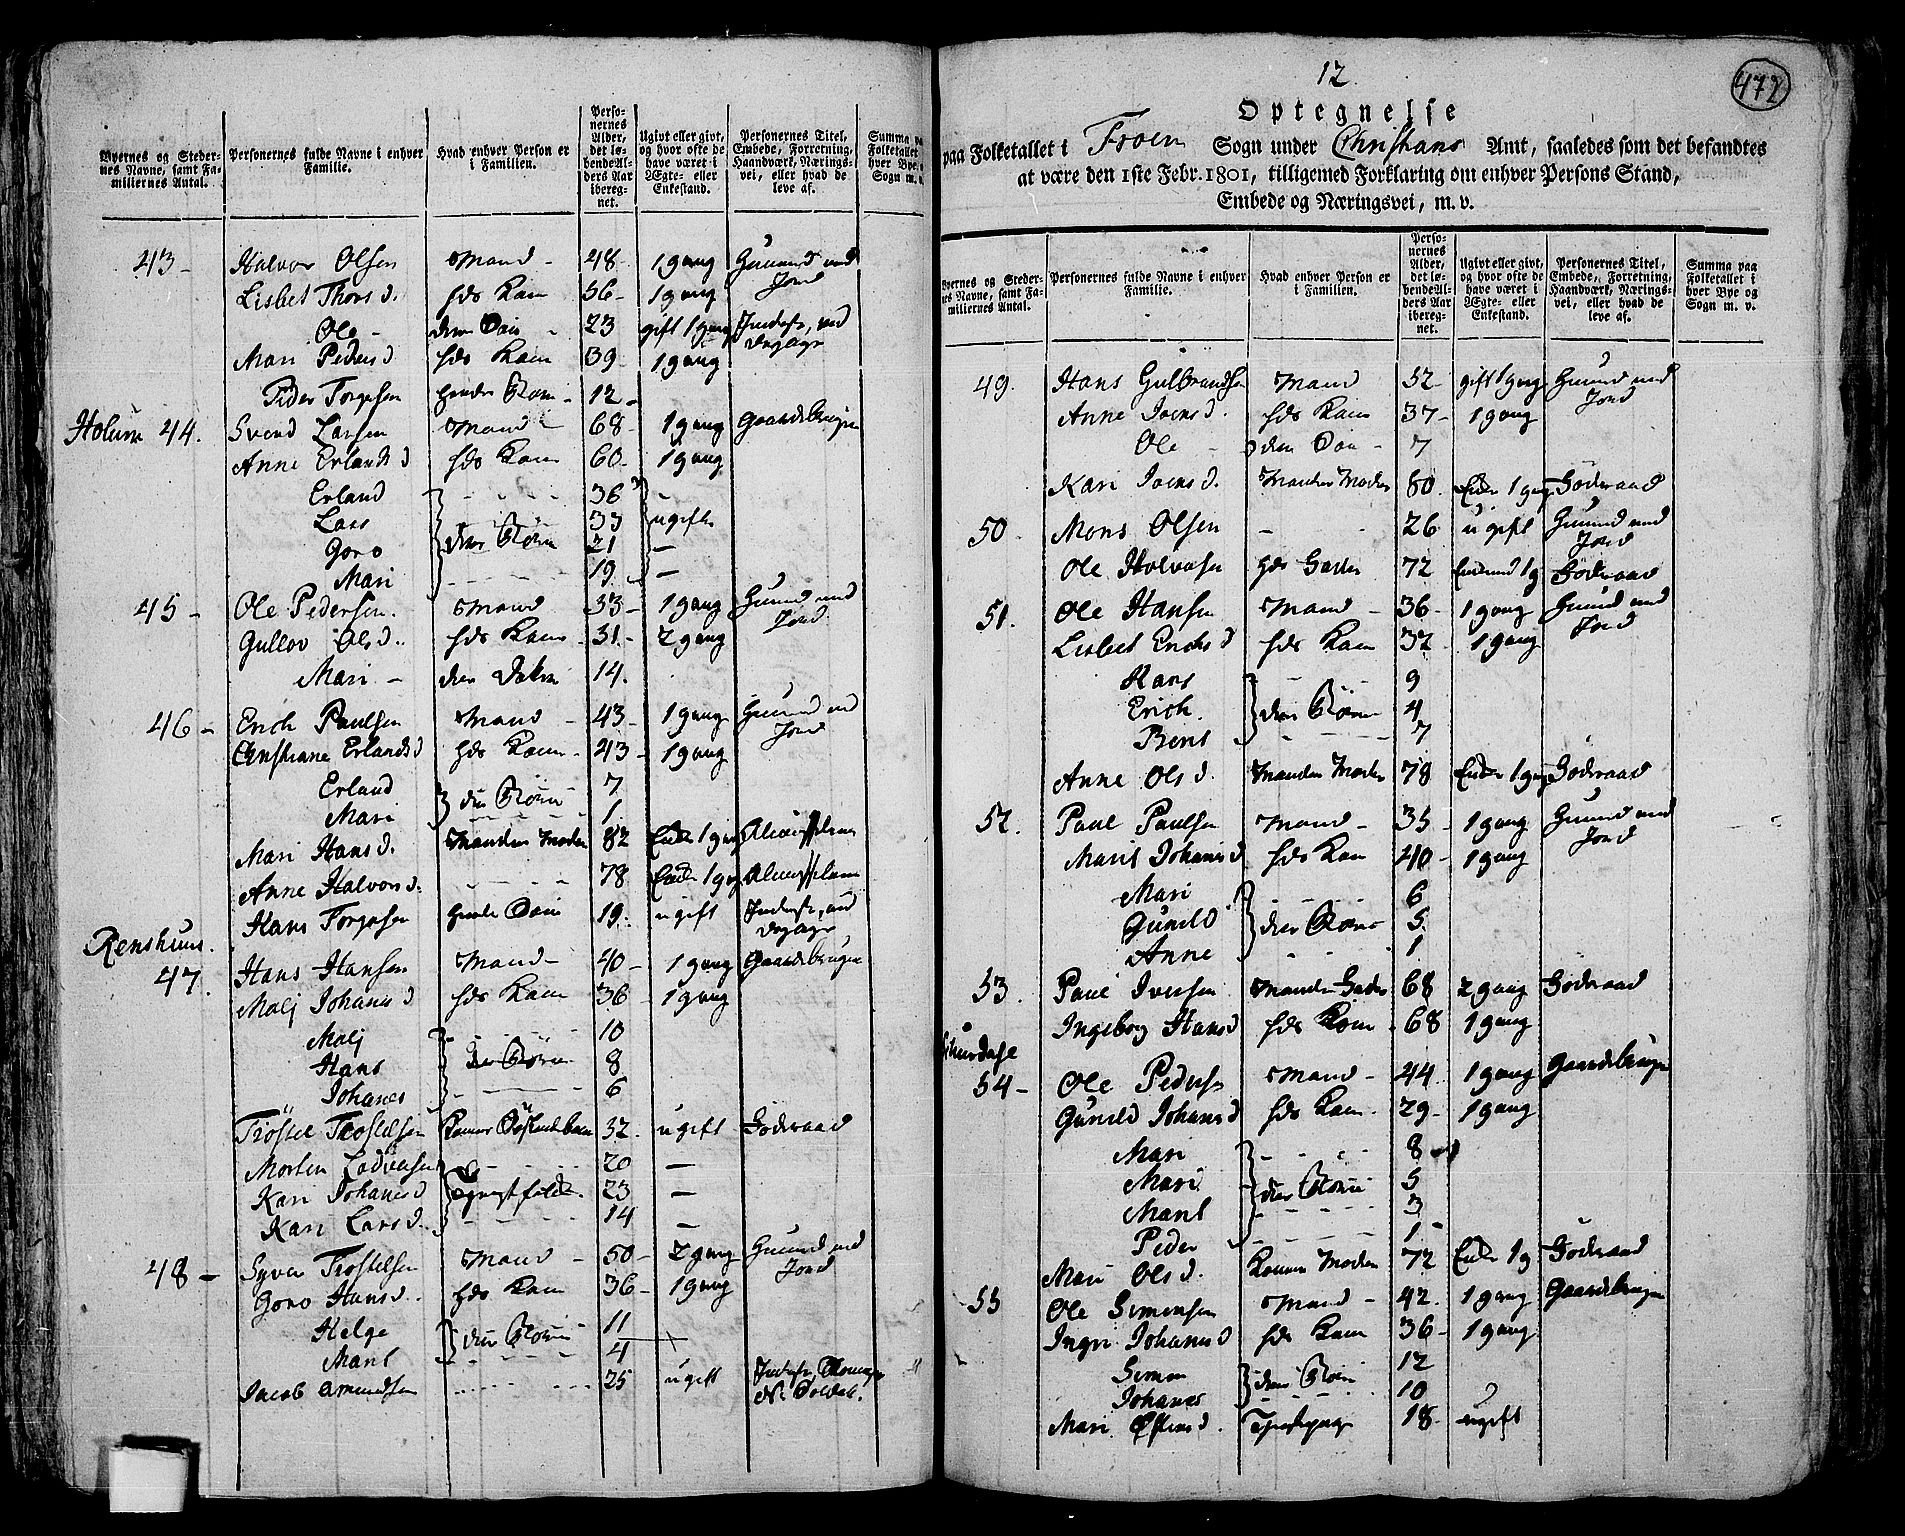 Byernes og Steder- Personernes fulde Navne i enhver Hvad enhver Person er Perso- Ugivt eller givt, Personernes Titel, Summa paa
nes Navne, samt Fa- Familie. i Familien. nernes og hvor ofte de Embede, Forretning, Folketallet i
miliernes Antal. Alder, have været i Haandværk, Nærings- hver Bye og
det lø- Ægte- eller vei, eller hvad de Sogn m. v.
bende Al- Enkestand. leve af.
ders Aar
iberegnet.
43 - Halvor Olsen Mand - 48 1 gang Huusmd med Jord
Lisbet Thors d. hds Kone 56 - 1 gang
Ole - deres Søn - 23 gift 1 gang Inderst,
Mari Peders d hds Kone 39 - 1 gang
Peder Torgersen hendes 12 -
Holum 44. Svend Larsen Mand 68 - 1 gang Gaardebruger
Anne Erlands d hds Kone 60 - 1 gang
Erland 36
Lars 33 ugifte
Goro deres Børn 21 -
Mari 19 -
45 - Ole Pedersen. Mand 33 - 1 gang Huusmd med Jord
Gullov Ols d. hds Kone 31 - 2 gang
Mari - deres 14.
46 - Erich Paulsen Mand - 43 - 1 gang Huusmd med Jord
Christiane Erlands d hds Kone - 43 - 1 gang
Erland deres Børn 7
Mari 1
Mari Hans d. Mandens Moder 82 Enke 1 gang
Anne Halvors d. 78 Enke 1 gang
Hans Torgersen 19. ugift Inderst,
Renshuus.
47. Hans Hansen Mand - 40 - 1 gang Gaardebruger
Malj Johanes d hds Kone 36 - 1 gang
Malj 10
Hans deres Børn 8
Johanes 6
Tröstel Tröstelsen 32. ugift Föderaad
Morten 20 -
Kari Johanes d 23 -
Kari Lars d. 14 -
48 - Syver Tröstelsen Mand - 50 - 2 gang Huusmd med Jord
Goro Hans d. hds Kone 36 - 1 gang
Helge deres Børn 11
Marit 4
Jacob Amundsen 25 ugift
12
472
Optegnelse
paa Folketallet i Froen Sogn under Christians Amt, saaledes som det befandtes
at være den 1ste Febr. 1801, tilligemed Forklaring om enhver Persons Stand,
Embede og Næringsvei, m. v.
Byernes og Steder- Personernes fulde Navne i enhver Hvad enhver Person er Perso- Ugivt eller givt, Personernes Titel, Summa paa
nes Navne, samt Fa- Familie. i Familien. nernes og hvor ofte de Embede, Forretning, Folketallet i
miliernes Antal. Alder, have været i Haandværk, Nærings- hver Bye og
det lø- Ægte- eller vei, eller hvad de Sogn m. v.
bende Al- Enkestand. leve af.
ders Aar
iberegnet.
49. Hans Gulbrandsen Mand 52 gift 1 gang Huusmd med Jord
Anne Joens d. hds Kone 37 - 1 gang
Ole - deres Søn - 7
Kari Joens d. Mandens Moder 80. Enke 1 gang Föderaad
50 Mons Olsen - 26 ugift Huusmd med Jord
Ole Halvorsen hds Fader 72 Enkemd 1 g Föderaad
51. Ole Hansen Mand - 36 - 1 gang Huusmd med Jord
Lisbet Erichs d hds Kone 32 - 1 gang
Hans 9
Erich deres Børn 4
Berit 7
Anne Ols d. Mandens Moder 78 Enke 1 gang Föderaad
52. Paul Paulsen Mand - 35 - 1 gang Huusmd med Jord
Marit Johanes d hds Kone 40 - 1 gang
Mari 6
Gunild deres Børn 5
Anne 1
53. Paul Iversen Mandens Fader 68 2 gang Föderaad
Ingeborg Hans d hds Kone 68 1 gang
54 - Ole Peders Mand - 44 1 gang Gaardebruger
Gunild Johanes d hds Kone - 29 - 1 gang
Mari 8
Mari deres Børn 5
Marit 3
Peder 1
Mari Ols d. Konens Moder 72 Enke 1 g Föderaad
55 Ole Simensen Mand - 42. 1 gang Gaardebruger
Ingri Johanes d hds Kone 36 - 1 gang
Simen deres Børn 12
Johanes 10
Mari d. Tjenistepige 18 - ugift